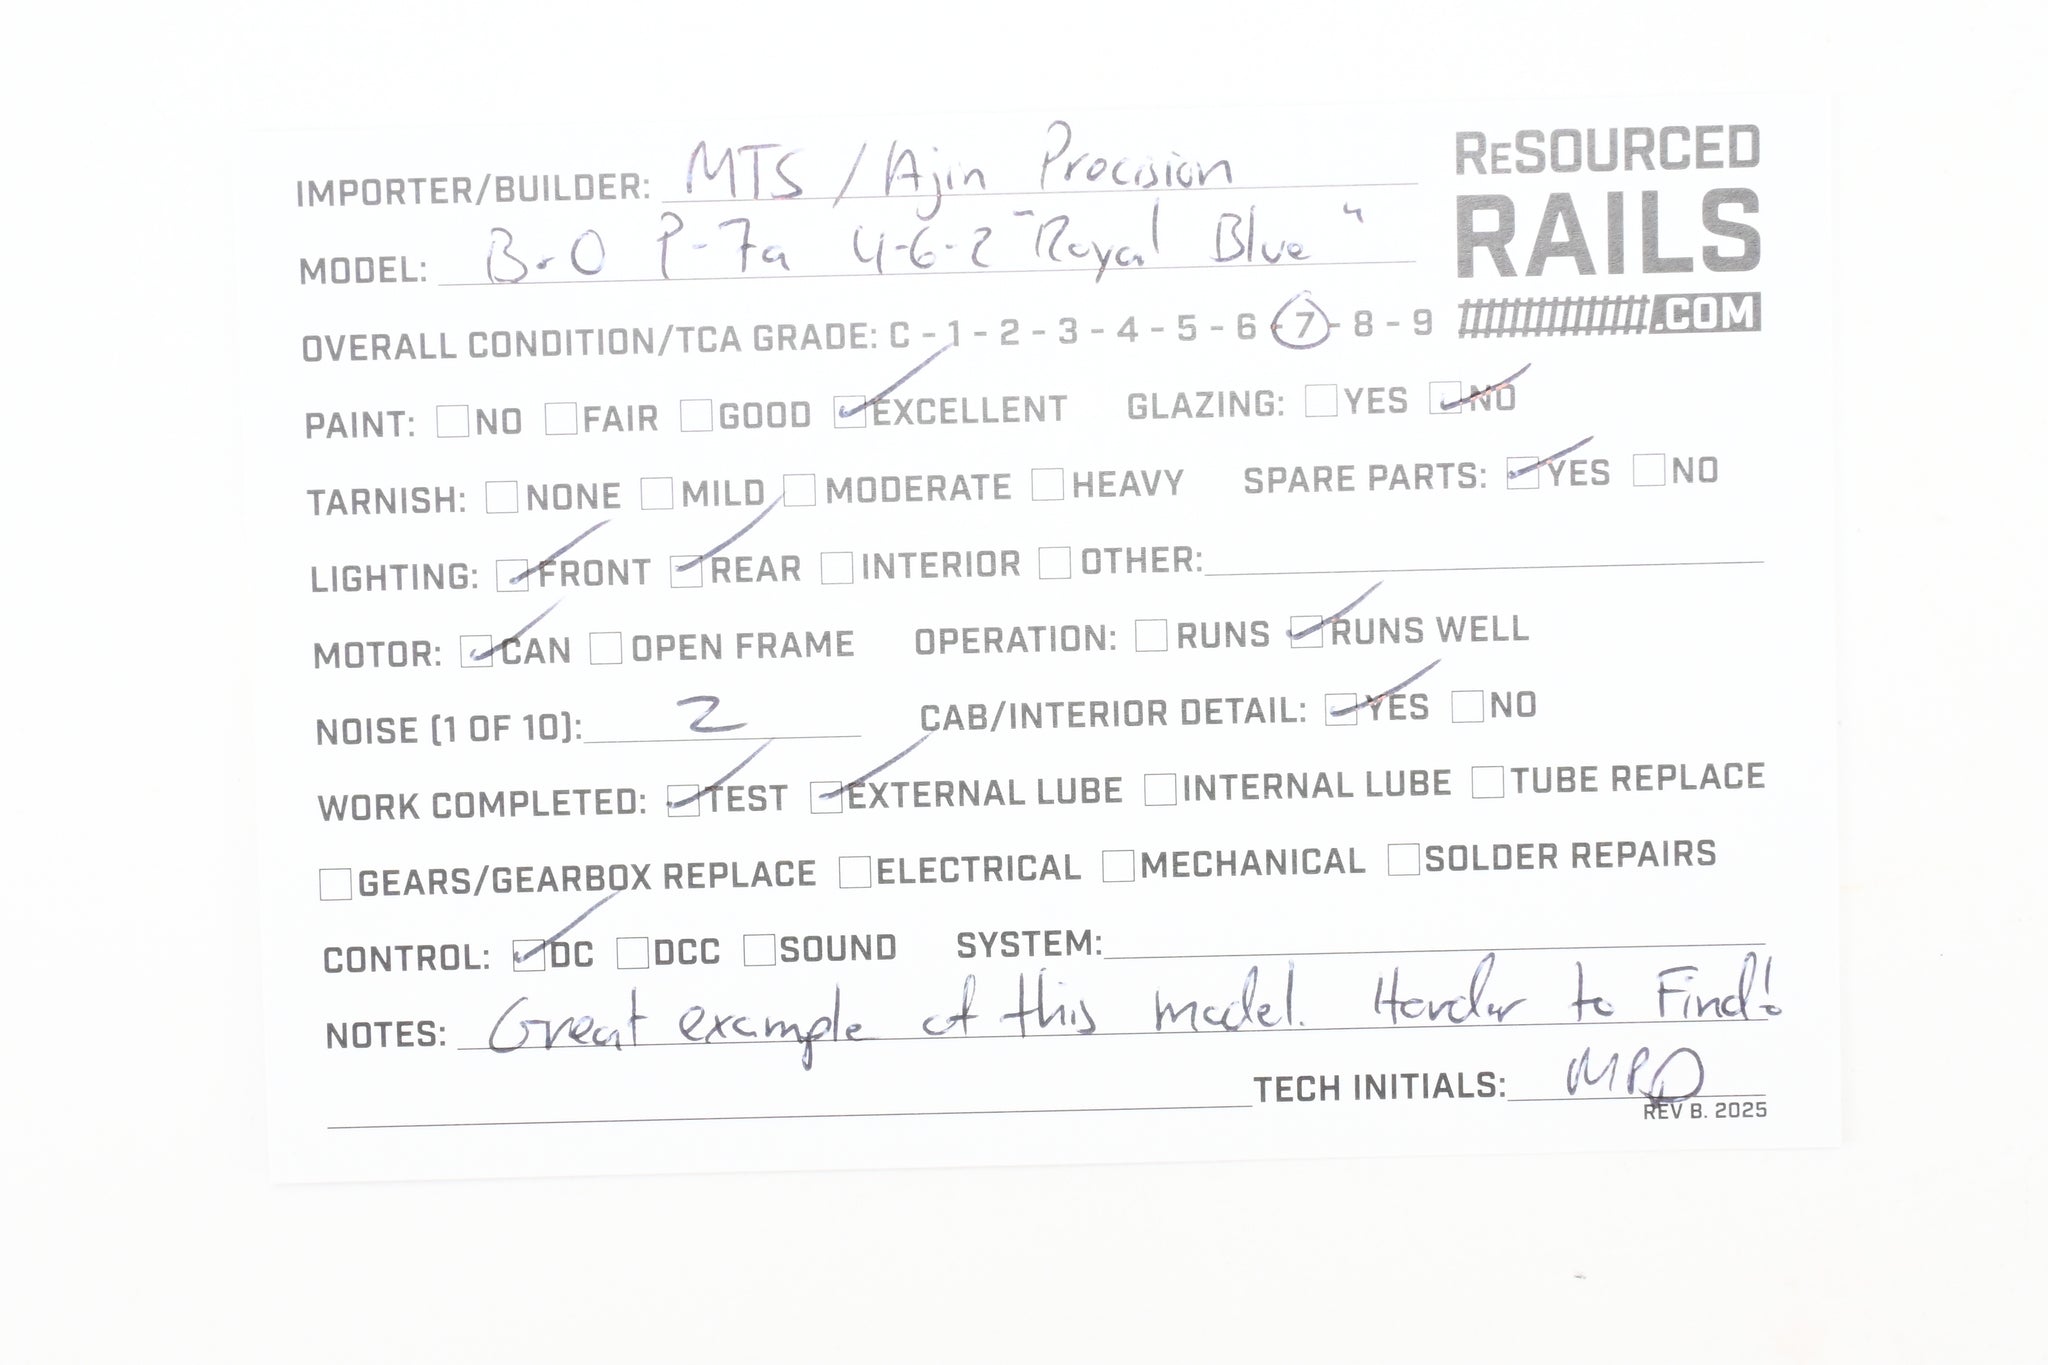 ReSOURCED
RAILS
.COM
IMPORTER/BUILDER: MTS / Ajin Precision
MODEL: B&O P-7a 4-6-2 "Royal Blue"
OVERALL CONDITION/TCA GRADE: C - 1 - 2 - 3 - 4 - 5 - 6 - 7 - 8 - 9
PAINT: ☐ NO ☐ FAIR ☐ GOOD ☑ EXCELLENT GLAZING: ☐ YES ☑ NO
TARNISH: ☐ NONE ☐ MILD ☐ MODERATE ☐ HEAVY SPARE PARTS: ☑ YES ☐ NO
LIGHTING: ☑ FRONT ☑ REAR ☐ INTERIOR ☐ OTHER:
MOTOR: ☑ CAN ☐ OPEN FRAME OPERATION: ☐ RUNS ☑ RUNS WELL
NOISE (1 OF 10): 2 CAB/INTERIOR DETAIL: ☑ YES ☐ NO
WORK COMPLETED: ☑ TEST ☑ EXTERNAL LUBE ☐ INTERNAL LUBE ☐ TUBE REPLACE
☐ GEARS/GEARBOX REPLACE ☐ ELECTRICAL ☐ MECHANICAL ☐ SOLDER REPAIRS
CONTROL: ☑ DC ☐ DCC ☐ SOUND SYSTEM:
NOTES: Great example of this model. Harder to Find!
TECH INITIALS: MRD
REV B. 2025